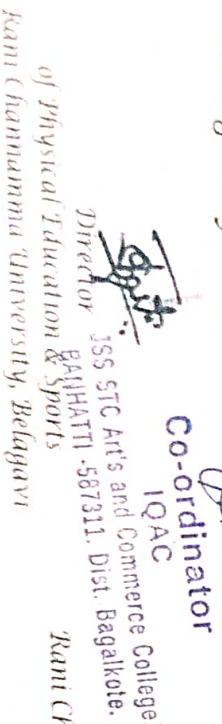 Co-ordinator
IQAC
JSS STC Art's and Commerce College
BANHATTI -587311. Dist. Bagalkote.
Director
of Physical Education & Sports
Rani Channamma University, Belagavi
Rani Ch